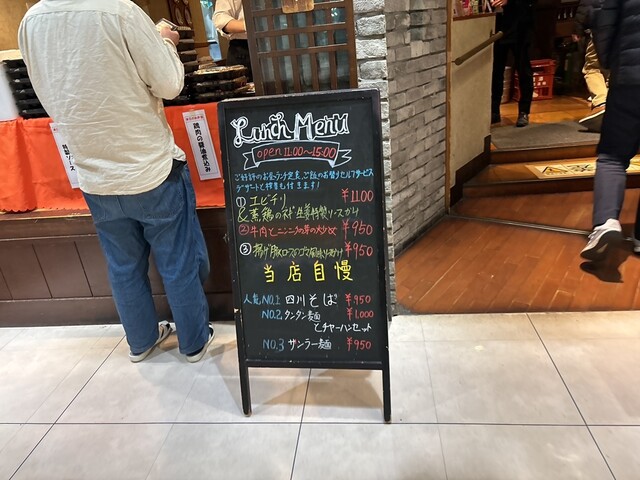 Lunch Menu
open 11:00〜15:00
ご好評のお昼ランチ定食、ご飯のお替りセルフサービス
デザートと搾菜も付きます！
① エビチリ ¥1100
&蒸鶏のネギ生姜特製ソースがけ
② 牛肉とニンニクの芽の大少々 ¥950
③ 揚げ豚ロースのゴマ風味ソースがけ ¥950
当店自慢
人気NO.1 四川そば ¥950
NO.2 タンタン麺 ¥1,000
とチャーハンセット
NO.3 サンラー麺 ¥950
鶏肉の醤油煮込み